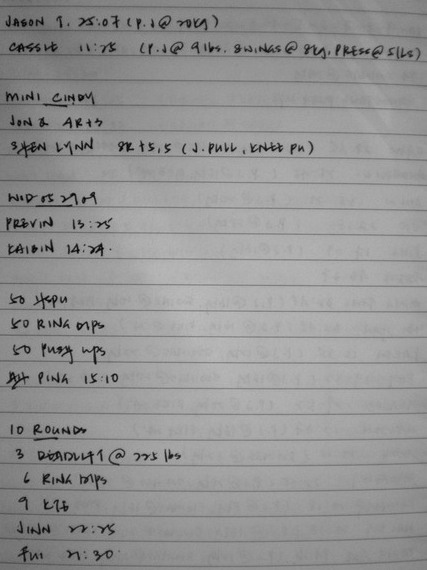 JASON T. 25:07 (P.J @ 20kg)
CASSIE 11:25 (P.J @ 9 lbs. SWINGS @ 8kg, PRESS @ 5lbs)
MINI CINDY
JON Z 4R+3
SHEN LYNN 8R+5,5 (J.PULL, KNEE PU)
WOD 052909
PREVIN 13:25
KAIBIN 14:24
50 HSPU
50 RING DIPS
50 PUSH UPS
PING 15:10
10 ROUNDS
3 DEADLIFT @ 225 lbs
6 RING DIPS
9 KTE
JINN 22:25
FUI 21:30